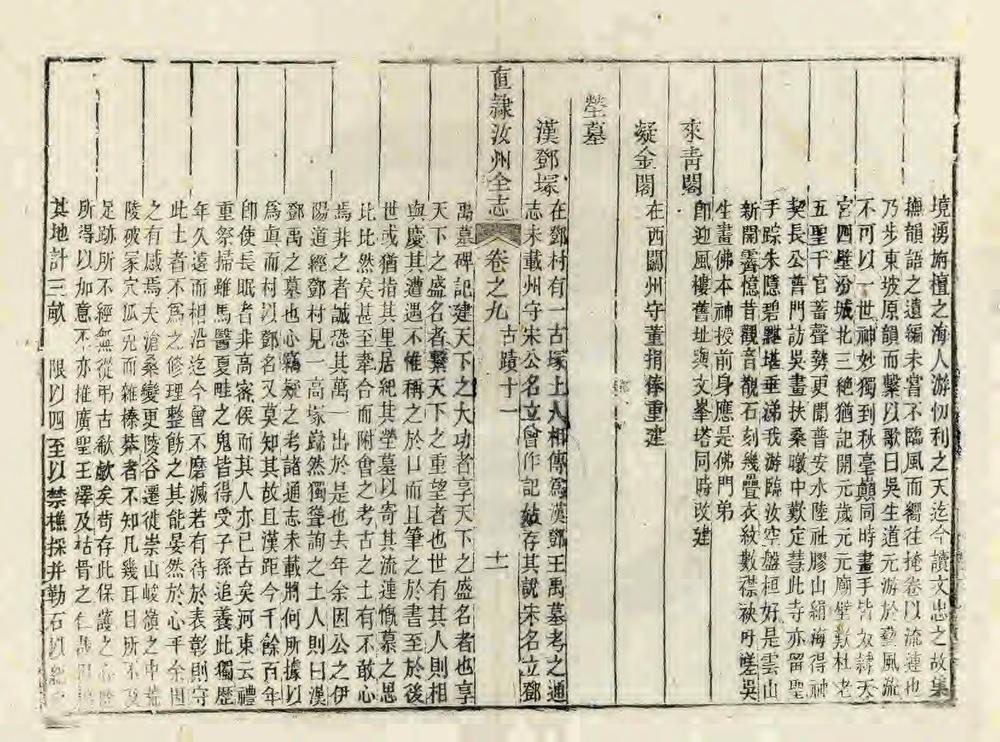 境湧旃檀之海人游忉利之天迄今讀文忠之故集
撫韻語之遠編未嘗不臨風而嚮往掩卷以流連也
乃步東坡原韻而繫以歌曰吳生道元游於藝風流
不可以一世神妙獨到秋毫顛同時畫手皆奴隸天
宮四壁汾城北三絕猶記開元歲元元廟壁歎杜老
五聖千官蓄聲勢更聞普安水陸社膠山絹海得神
契長公普門訪吳畫扶桑暾中歎定慧此寺亦留聖
手踪朱隱碧堪垂涕我游臨汝空盤桓好是雲山
新開霽憶昔觀音觀石刻幾疊衣紋數襟袂吁嗟吳
生畫佛本神授前身應是佛門弟
來青閣
即迎風樓舊址與文峯塔同時改建
凝金閣
在西關州守董捐俸重建
塋墓
漢鄧塚
在鄧村有一古塚土人相傳爲漢鄧王禹墓考之通
志未載州守宋公名立曾作記姑存其說宋名立鄧
直隸汝州全志
卷之九
古蹟十一
十一
禹墓碑記建天下之大功者享天下之盛名者也享
天下之盛名者繫天下之重望者也世有其人則相
與慶其遭遇不惟稱之於口而且筆之於書至於後
世或猶指其里居紀其塋墓以寄其流連慨慕之思
比比然矣甚至牽合而附會之考古之士有不敢心
焉非之者誠恐其萬一出於是也去年余因公之伊
陽道經鄧村見一高塚巋然獨聳詢之土人則曰漢
鄧禹之墓也心竊疑之考諸通志未載將何所據以
爲眞而村以鄧名又莫知其故且漢距今千餘百年
卽使長眠者非高密侯而其人亦已古矣河東云禮
重祭掃雖馬醫夏畦之鬼皆得受子孫追養此獨歷
年久遠而相沿迄今曾不磨滅若有待於表彰則守
此土者不爲之修理整飭之其能晏然於心乎余因
之有感焉夫滄桑變更陵谷遷徙崇山峻嶺之中荒
陵破冢穴狐兎而雜榛蓁者不知凡幾耳目所不及
足跡所不經無從弔古欷歔矣苟存此保護之心
所得以如意不亦推廣聖王澤及枯骨之仁
其地計三畝　限以四至以禁樵採并勒石以